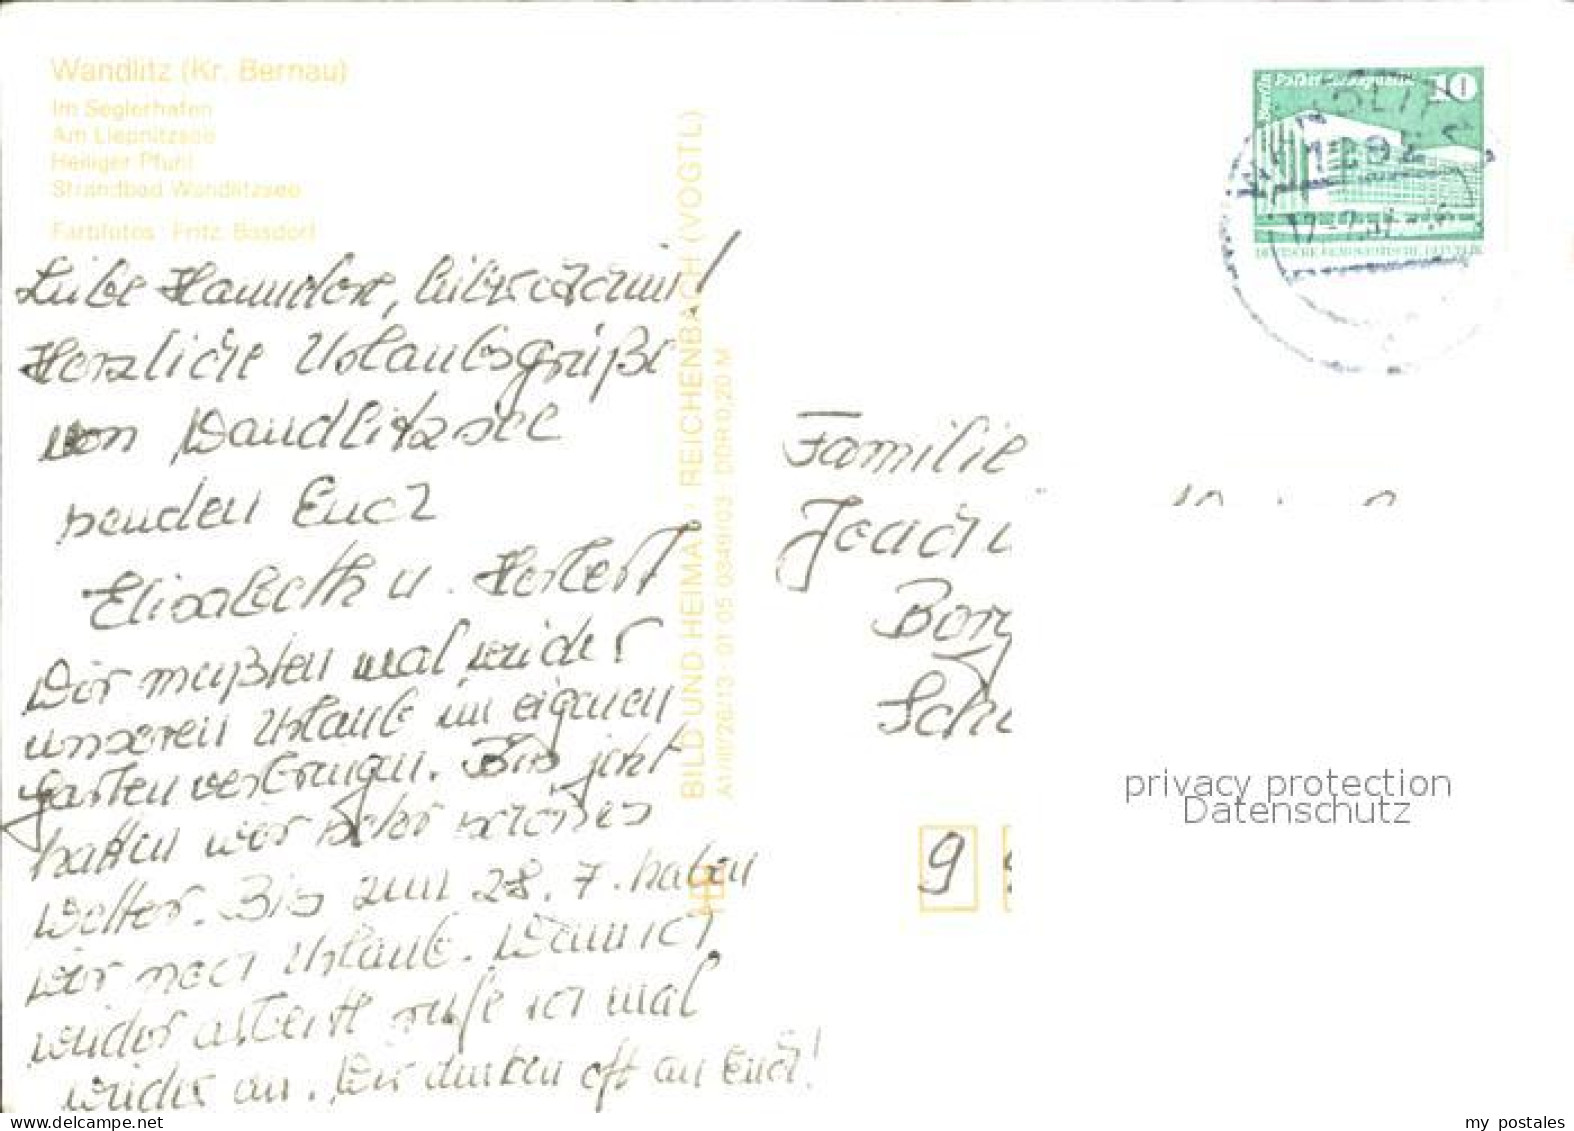 Wandlitz (Kr. Bernau)
Im Seglerhafen
Am Liepnitzsee
Heiliger Pfuhl
Strandbad Wandlitzsee
Farbfotos: Fritz, Basdorf
Liebe Hannelore, lieber Joachim!
Herzliche Urlaubsgrüße
von Wandlitzsee
senden Euch
Elisabeth u. Herbert
Wir mußten mal wieder
unseren Urlaub im eigenen
Garten verbringen. Bis jetzt
hatten wir sehr schönes
Wetter. Bis zum 28. 7. haben
wir noch Urlaub. Wenn ich
wieder arbeite rufe ich mal
wieder an. Wir denken oft an Euch!
BILD UND HEIMAT REICHENBACH (VOGTL)
A1/III/26/13 · 01 05 0349/03 · DDR 0,20 M
Berlin Palast der Republik 10
DEUTSCHE DEMOKRATISCHE REPUBLIK
WANDLITZ
1292
Familie
Joachi
Borg
Schu
9
privacy protection
Datenschutz
www.delcampe.net
my postales